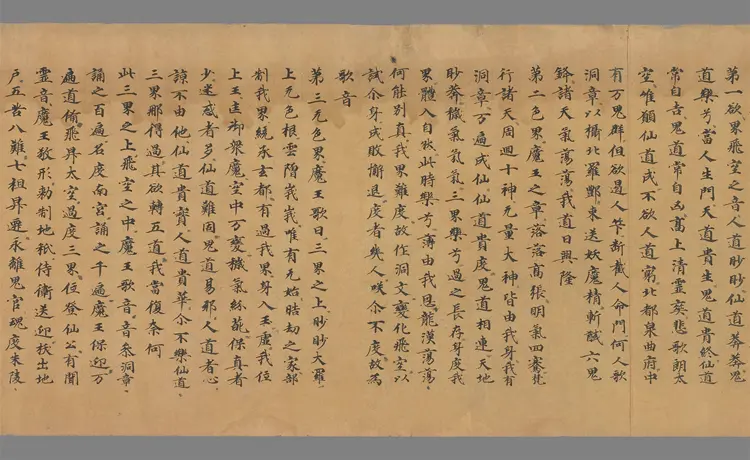 第一欲界飛空之音人道眇眇仙道莽莽鬼
道樂兮當人生門天道貴生鬼道貴終仙道
常自吉鬼道常自凶高上清靈爽悲歌朗太
空唯願仙道成不欲人道窮北都泉曲府中
有万鬼群但欲遏人筭斷截人命門何人歌
洞章以攝北羅酆束送妖魔精斬馘六鬼
鋒諸天氣蕩蕩我道日興隆
第二色界魔王之章落落高張明氣四騫梵
行諸天周迴十神无量大神皆由我身我有
洞章万遍成仙仙道貴度鬼道相連天地
眇莽穢氣氛氛三界樂兮過之長存身度我
界體入自然此時樂兮薄由我恩龍漢蕩蕩
何能別真我界難度故作洞文變化飛空以
試尒身成敗懈退度者幾人咲尒不度故為
歌音
第三无色界魔王歌曰三界之上眇眇大羅
上无色根雲層峩峩唯有无始浩劫之家部
制我界統乘玄都有過我界身入玉虛我位
上王匡御眾魔空中万變穢氣紛葩保真者
少迷惑者多仙道難固鬼道易邪人道者心
諒不由他仙道貴實人道貴華尒不樂仙道
三界那得過其欲轉五道我當復奈何
此三界之上飛空之中魔王歌音音參洞章
誦之百遍名度南宮誦之千遍魔王保迎万
遍道備飛昇太空過度三界位登仙公有聞
靈音魔王敬形勑制地秖侍衛送迎拔出地
戶五苦八難七祖昇遷永離鬼官魂度朱陵